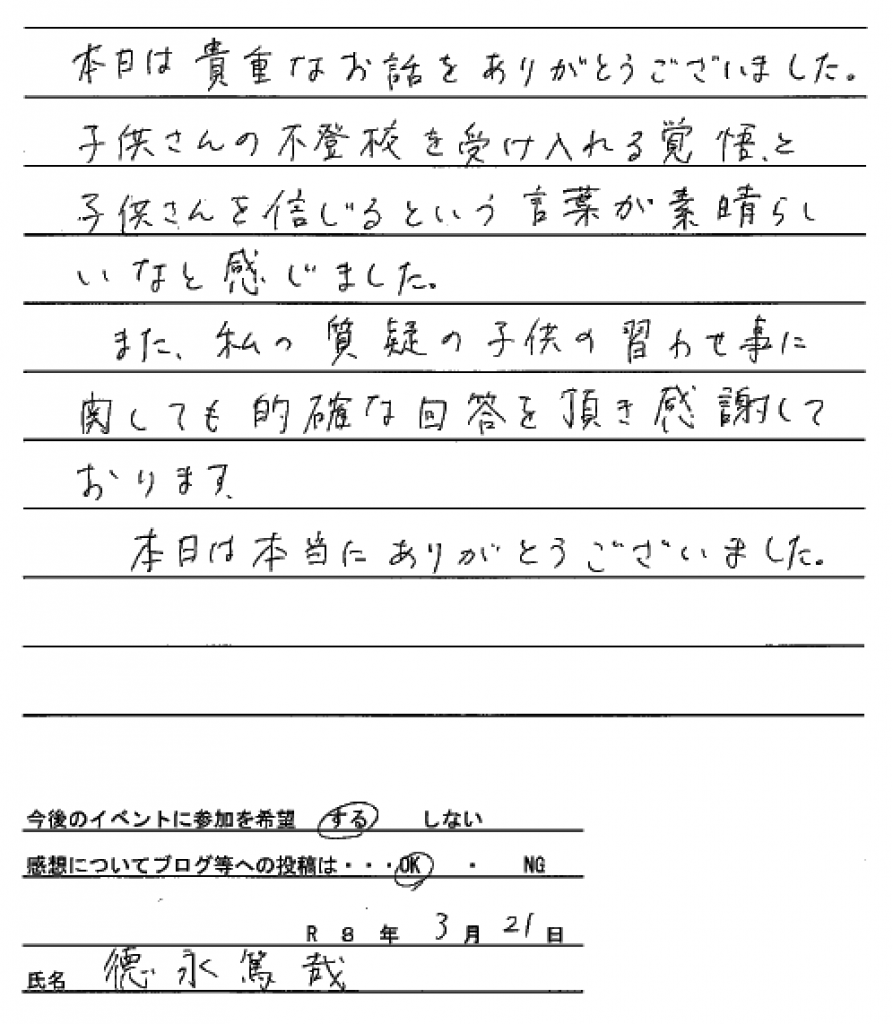 本日は貴重なお話をありがとうございました。
子供さんの不登校を受け入れる覚悟、と
子供さんを信じるという言葉が素晴らし
いなと感じました。
また、私の質疑の子供の習わせ事に
関しても的確な回答を頂き感謝して
おります、
本日は本当にありがとうございました。
今後のイベントに参加を希望 する しない
感想についてブログ等への投稿は・・・OK ・ NG
R 8 年 3 月 21 日
氏名 德永篤哉